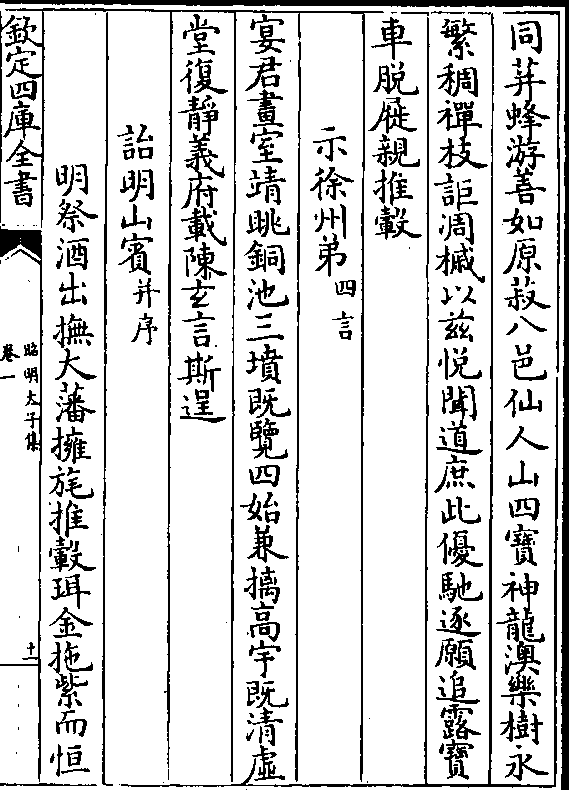 同菾蜂游善如原菽八邑仙人山四寶神龍澳樂樹永
繁稠禪枝詎凋槭以兹悦聞道庶此優馳逐願追露寶
車脱屣親推轂
示徐州弟四言
宴君畫室靖眺銅池三墳既覽四始兼摛高宇既清虛
堂復靜義府載陳玄言斯逞
詒明山賓并序
明祭酒出撫大藩擁旄推轂珥金拖紫而恒
欽定四庫全書
昭明太子集
卷一
十一